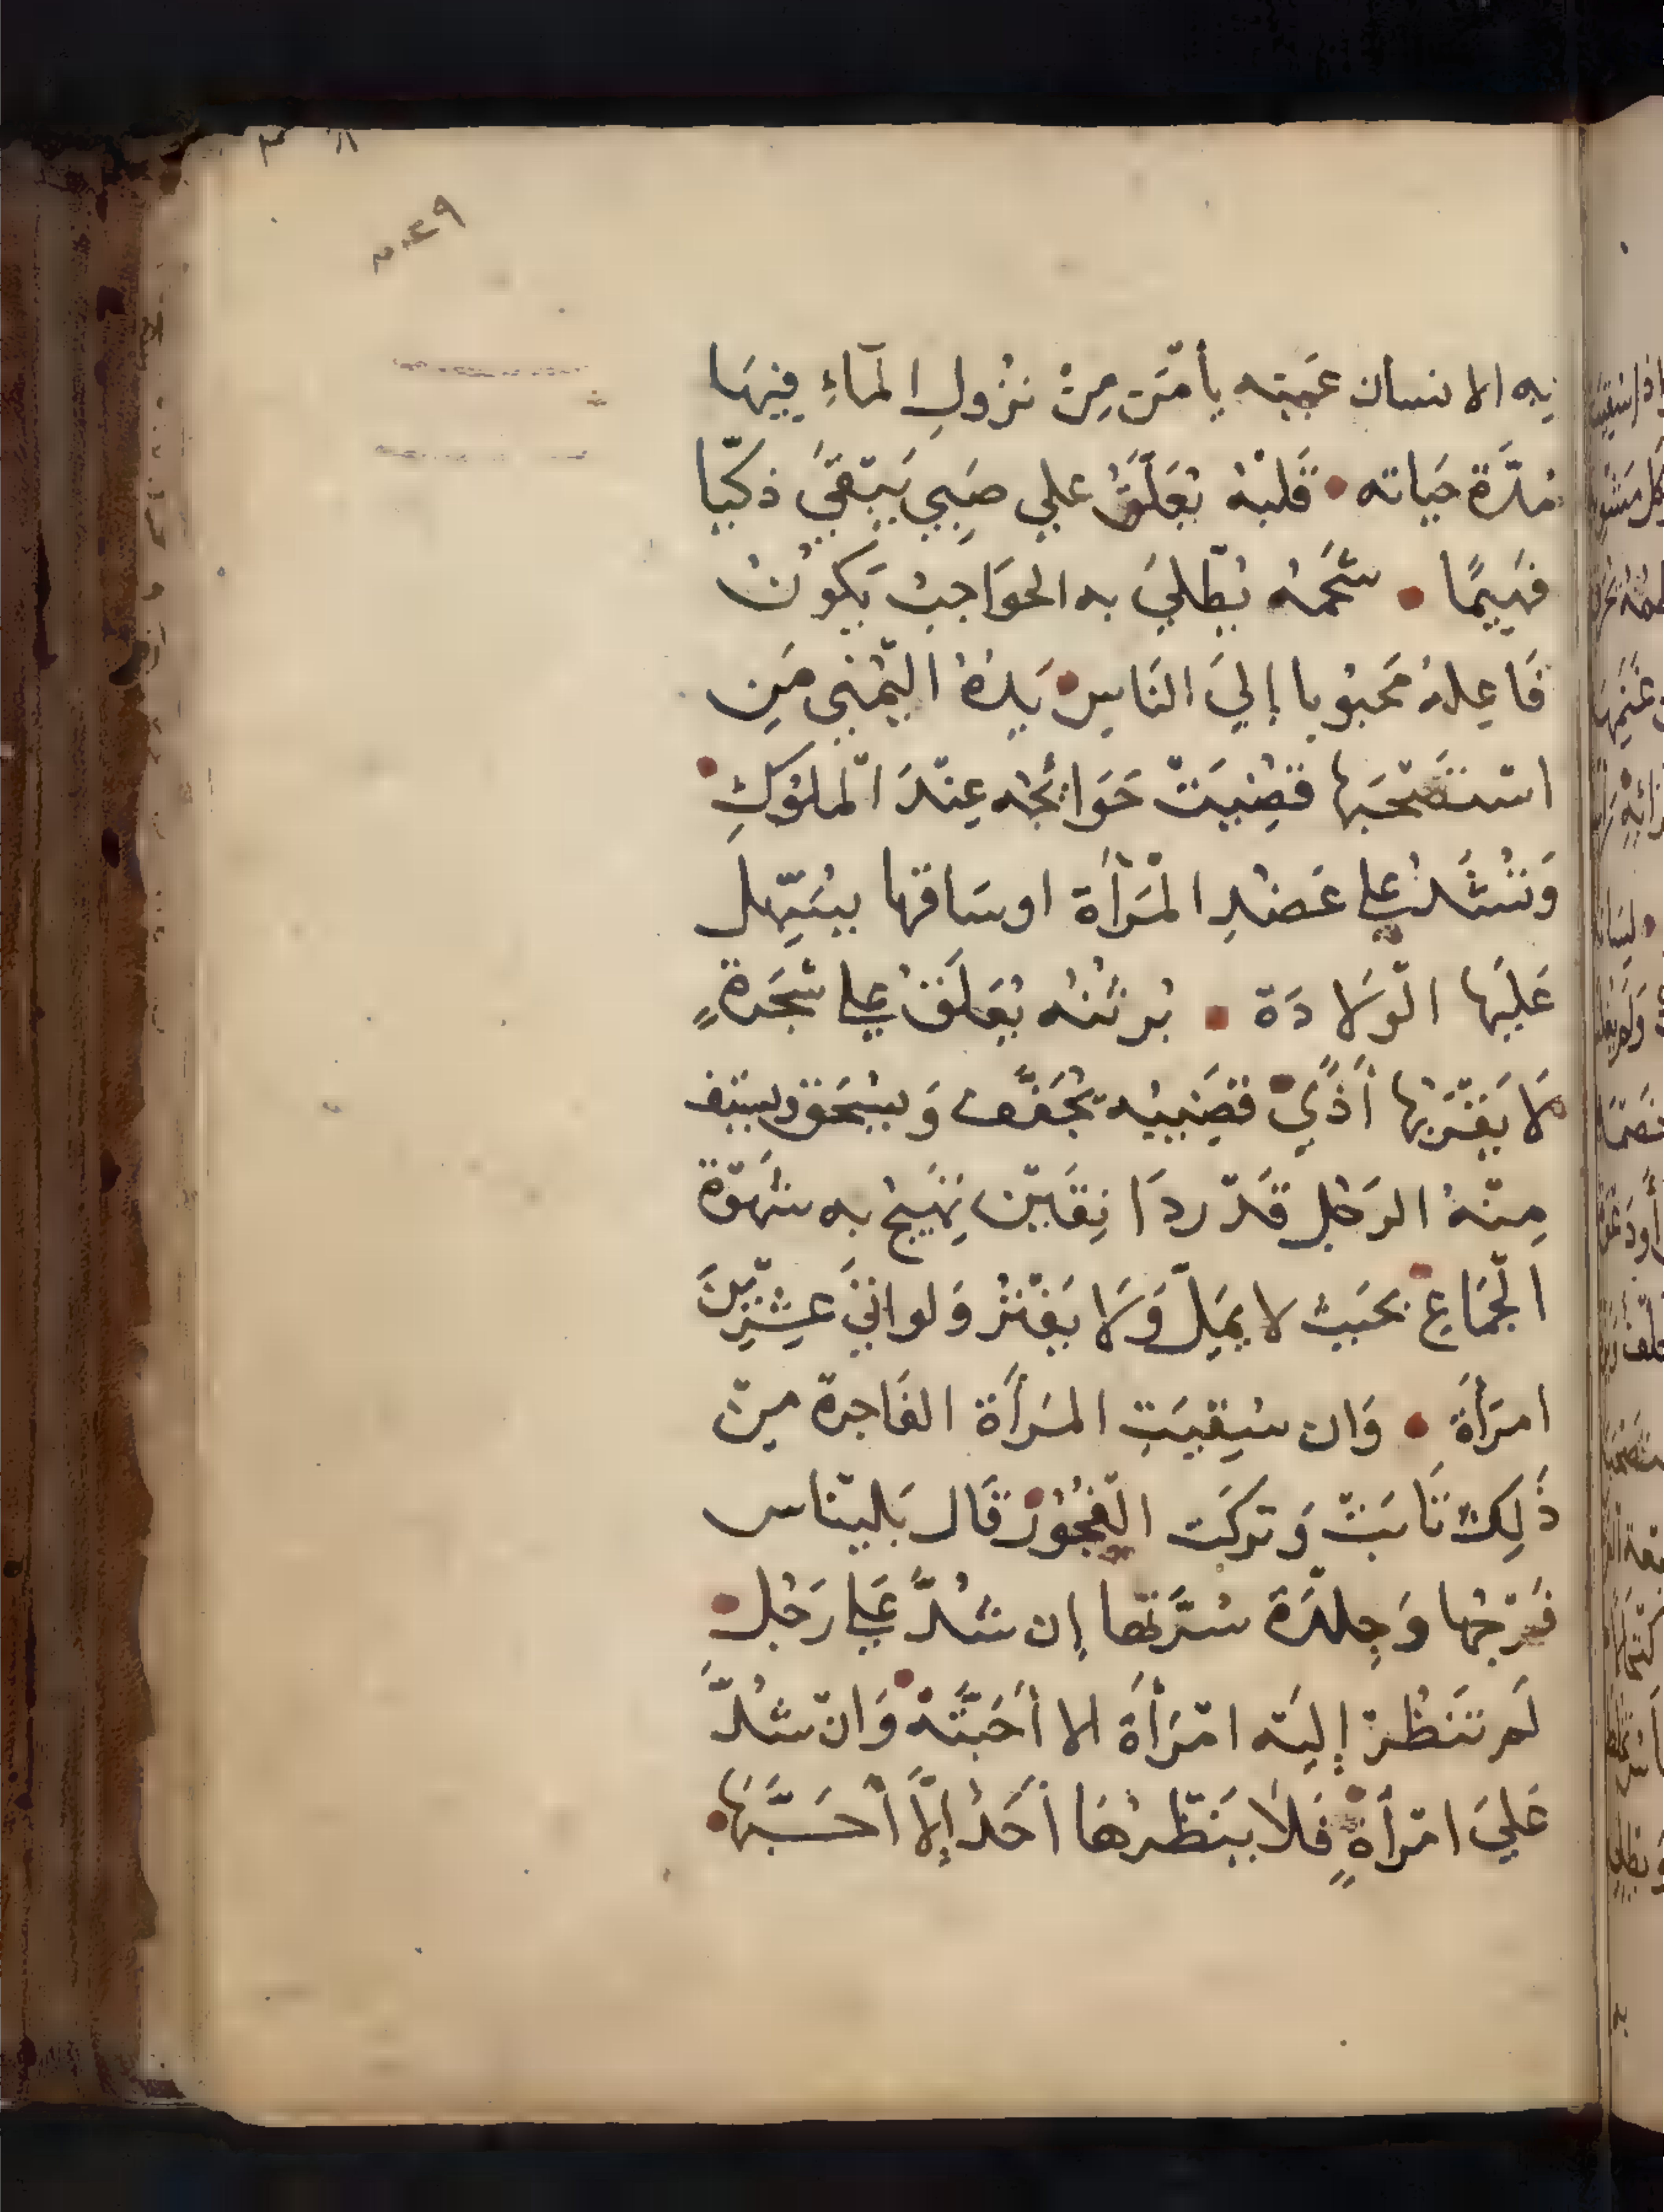 به الانسان عَينه يأمَن مِنْ نزُولِ المَآءِ فِيهَا
مُدَّةَ حَيَاته • قَلبُهُ يُعَلَّقُ علي صَبِي يَبْقَيَ ذكيّا
فهَيمًا • شَحمُهُ يُطْلَيَ به الحوَاجبُ يَكُونُ
فَاعِلهُ مَحبُوبا إليَ النَاسِ • يَدهُ اليُمْنى مَنِ
اسْتصْحَبها قضِيَتْ حَوَائجُه عِنْدَ الْملُوكِ •
وَتُشَدُّ علي عَضُدِ الْمَرْأَة اوسَاقها يسَهّل
عَليَها الْوَلادَة • بُرثنُه يُعَلقُ علي شجَرةٍ
لَا يَقْرَبها أَذًي • قضَيبُه يُجَفَّف وَيسْحَق ويسَف
مِنْهُ الرَجُل قَدْردَانِقَيْن يَهَيجُ به شَهْوَة
الْجمَاع • بحَيث لا يمَلّ وَلَا يَفْتر وَلواتيَ عِشْرِينَ
امرَأَة • وَان سُقِيَتِ المَرأَة الفَاجرة مِنْ
ذَلِكْ تَابَتْ وَتركَت الْفجُوْرَ • قَال بَليْناس
فَرْجُها وَجِلدَة سُرَّتها إن شُدَّ عَلي رَجُل •
لَم تَنظُرْ إليَه امْرَأَة الا أحَبَّتْهُ • وَانْ شُدَّ
عَليَ امْرأةٍ • فَلَا يَنْظُرهَا أحَدُ إلَّا أحَبَّهَا •